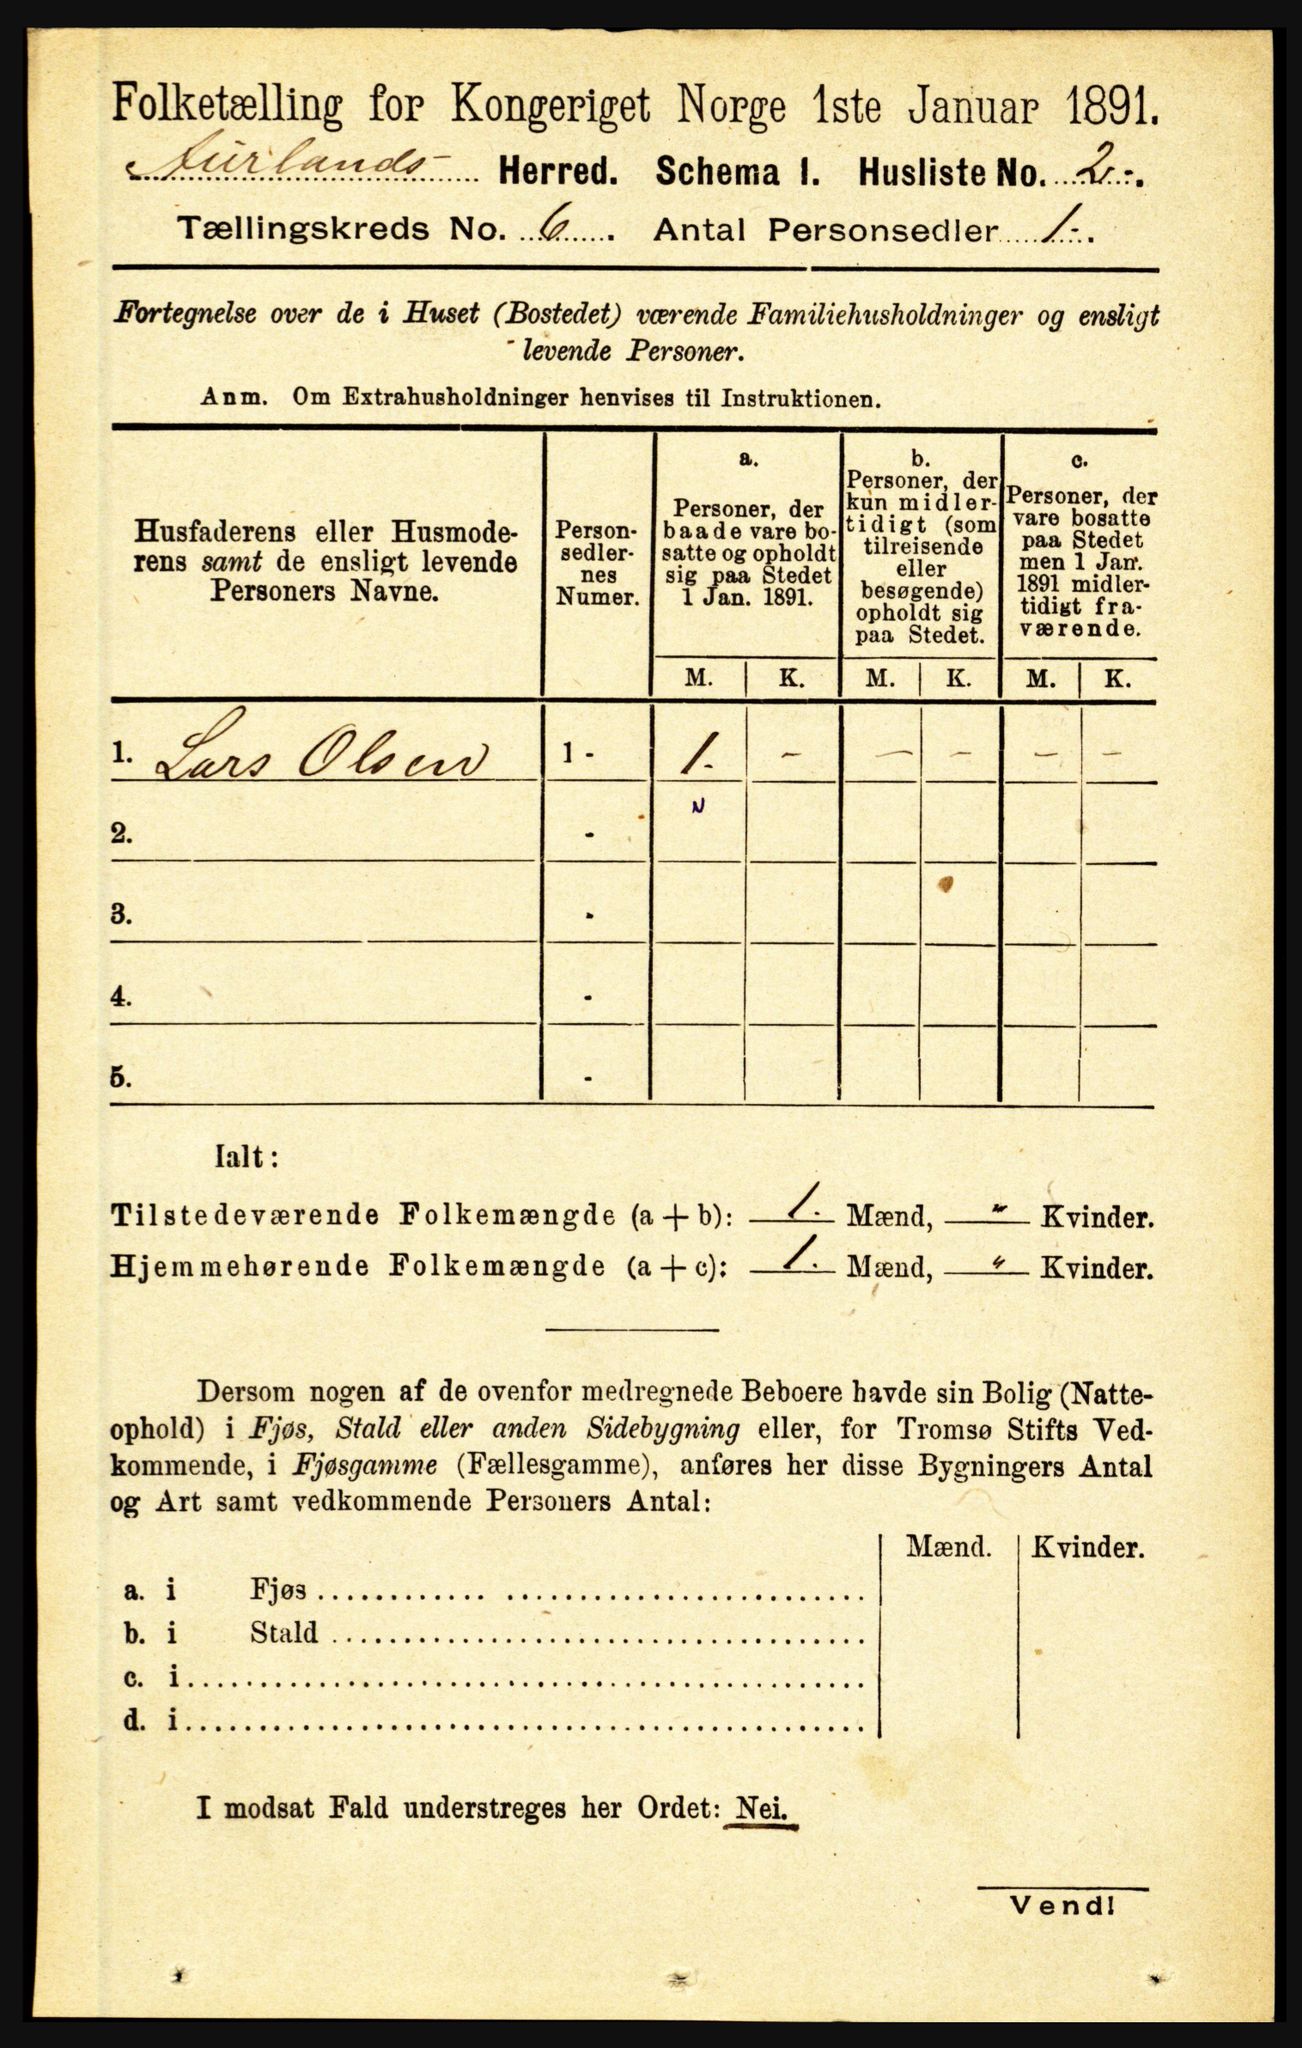 Folketælling for Kongeriget Norge 1ste Januar 1891.
Aurlands Herred. Schema I. Husliste No. 2.
Tællingskreds No. 6. Antal Personsedler 1.
Fortegnelse over de i Huset (Bostedet) værende Familiehusholdninger og ensligt
levende Personer.
Anm. Om Extrahusholdninger henvises til Instruktionen.
Husfaderens eller Husmode-
rens samt de ensligt levende
Personers Navne.
Person-
sedler-
nes
Numer.
a.
Personer, der
baade vare bo-
satte og opholdt
sig paa Stedet
1 Jan. 1891.
b.
Personer, der
kun midler-
tidigt (som
tilreisende
eller
besøgende)
opholdt sig
paa Stedet.
c.
Personer, der
vare bosatte
paa Stedet
men 1 Jan.
1891 midler-
tidigt fra-
værende.
M. K. M. K. M. K.
1. Lars Olsen 1 - 1. - - - - -
2. -
3. -
4. -
5. -
Ialt:
Tilstedeværende Folkemængde (a + b): 1. Mænd, " Kvinder.
Hjemmehørende Folkemængde (a + c): 1. Mænd, " Kvinder.
Dersom nogen af de ovenfor medregnede Beboere havde sin Bolig (Natte-
ophold) i Fjøs, Stald eller anden Sidebygning eller, for Tromsø Stifts Ved-
kommende, i Fjøsgamme (Fællesgamme), anføres her disse Bygningers Antal
og Art samt vedkommende Personers Antal:
Mænd. Kvinder.
a. i Fjøs
b. i Stald
c. i
d. i
I modsat Fald understreges her Ordet: Nei.
Vend!